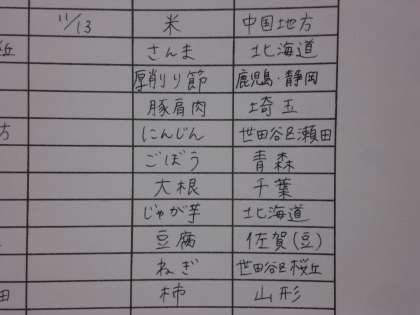 11/13 米 中国地方
丘 さんま 北海道
厚削り節 鹿児島・静岡
豚肩肉 埼玉
方 にんじん 世田谷区瀬田
ごぼう 青森
大根 千葉
じゃが芋 北海道
豆腐 佐賀(豆)
ねぎ 世田谷区桜丘
田 柿 山形